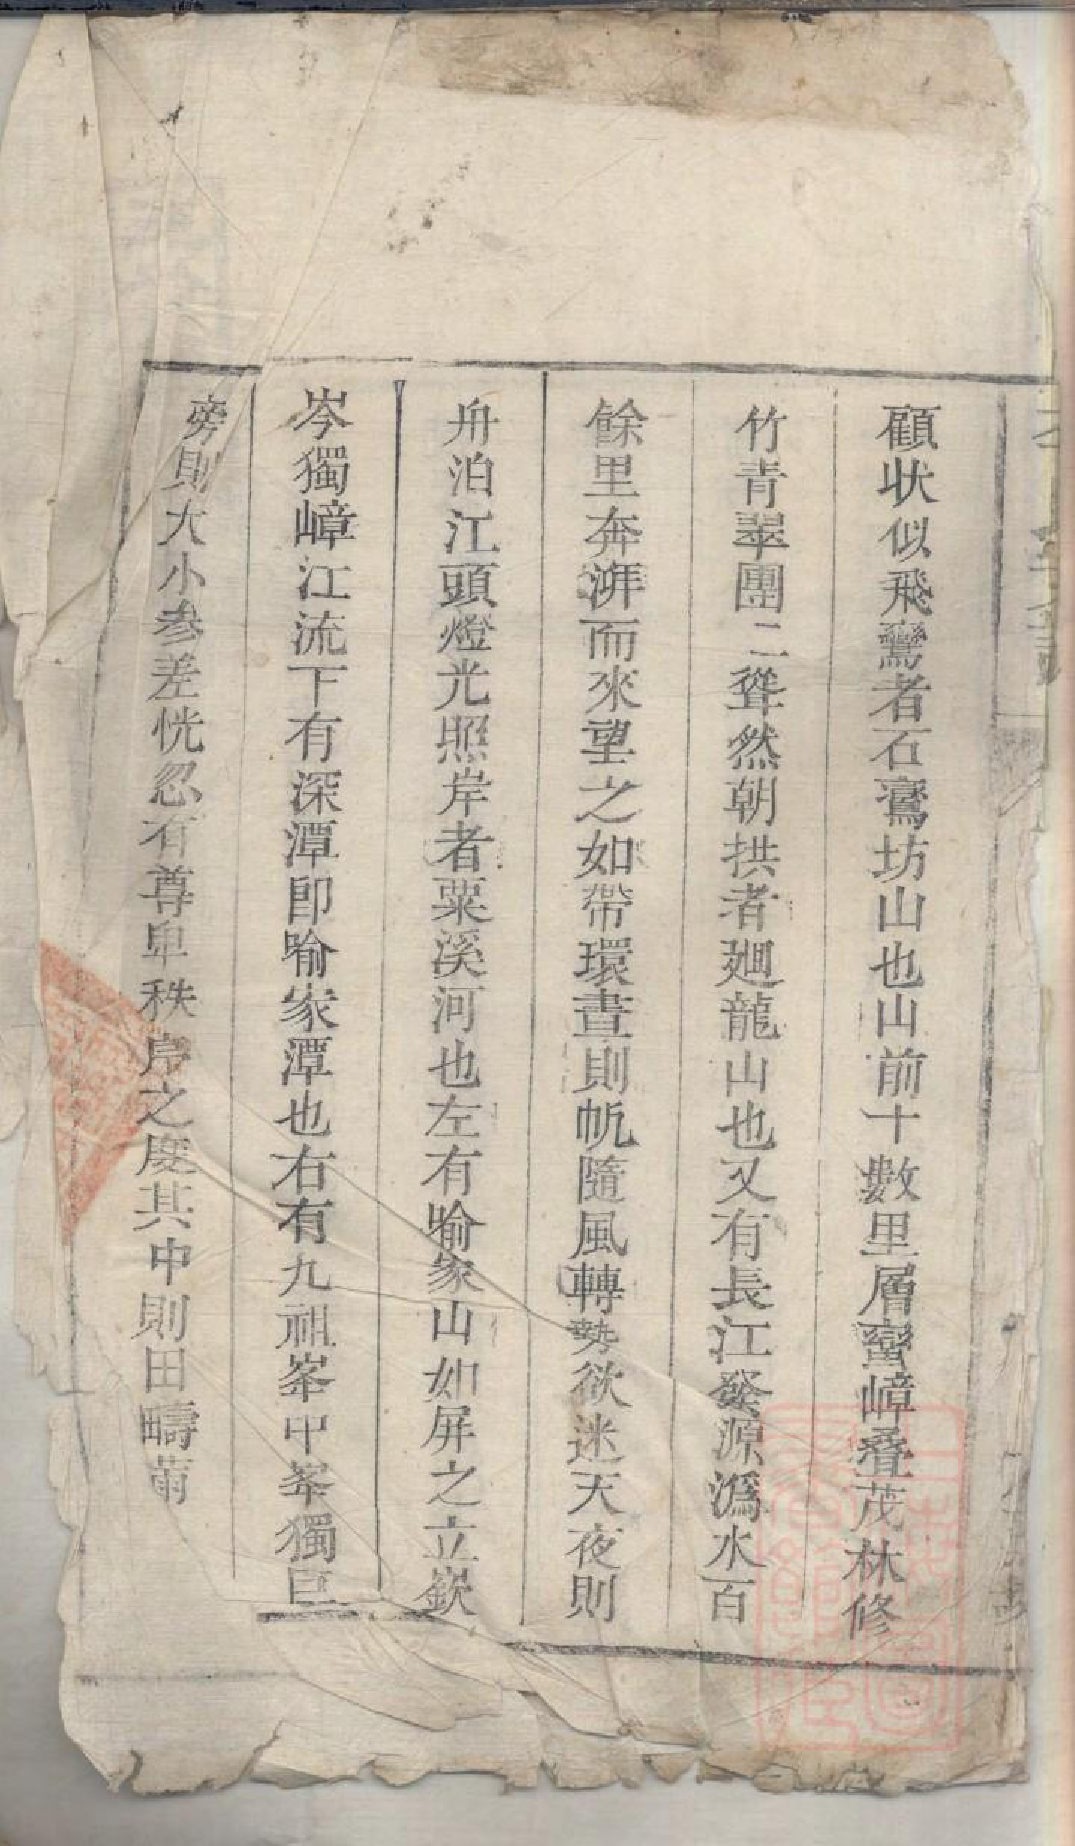 顧状似飛鸞者石鶱坊山也山前十數里層巒嶂疊茂林修
竹青翠團二聳然朝拱者廻龍山也又有長江發源溈水百
餘里奔湃而來望之如帶環晝則帆隨風轉勢欲迷天夜則
舟泊江頭燈光照岸者粟溪河也左有喻家山如屏之立嶔
岑獨嶂江流下有深潭即喻家潭也右有九祖峯中峯獨巨
旁則大小參差恍忽有尊卑秩序之度其中則田疇